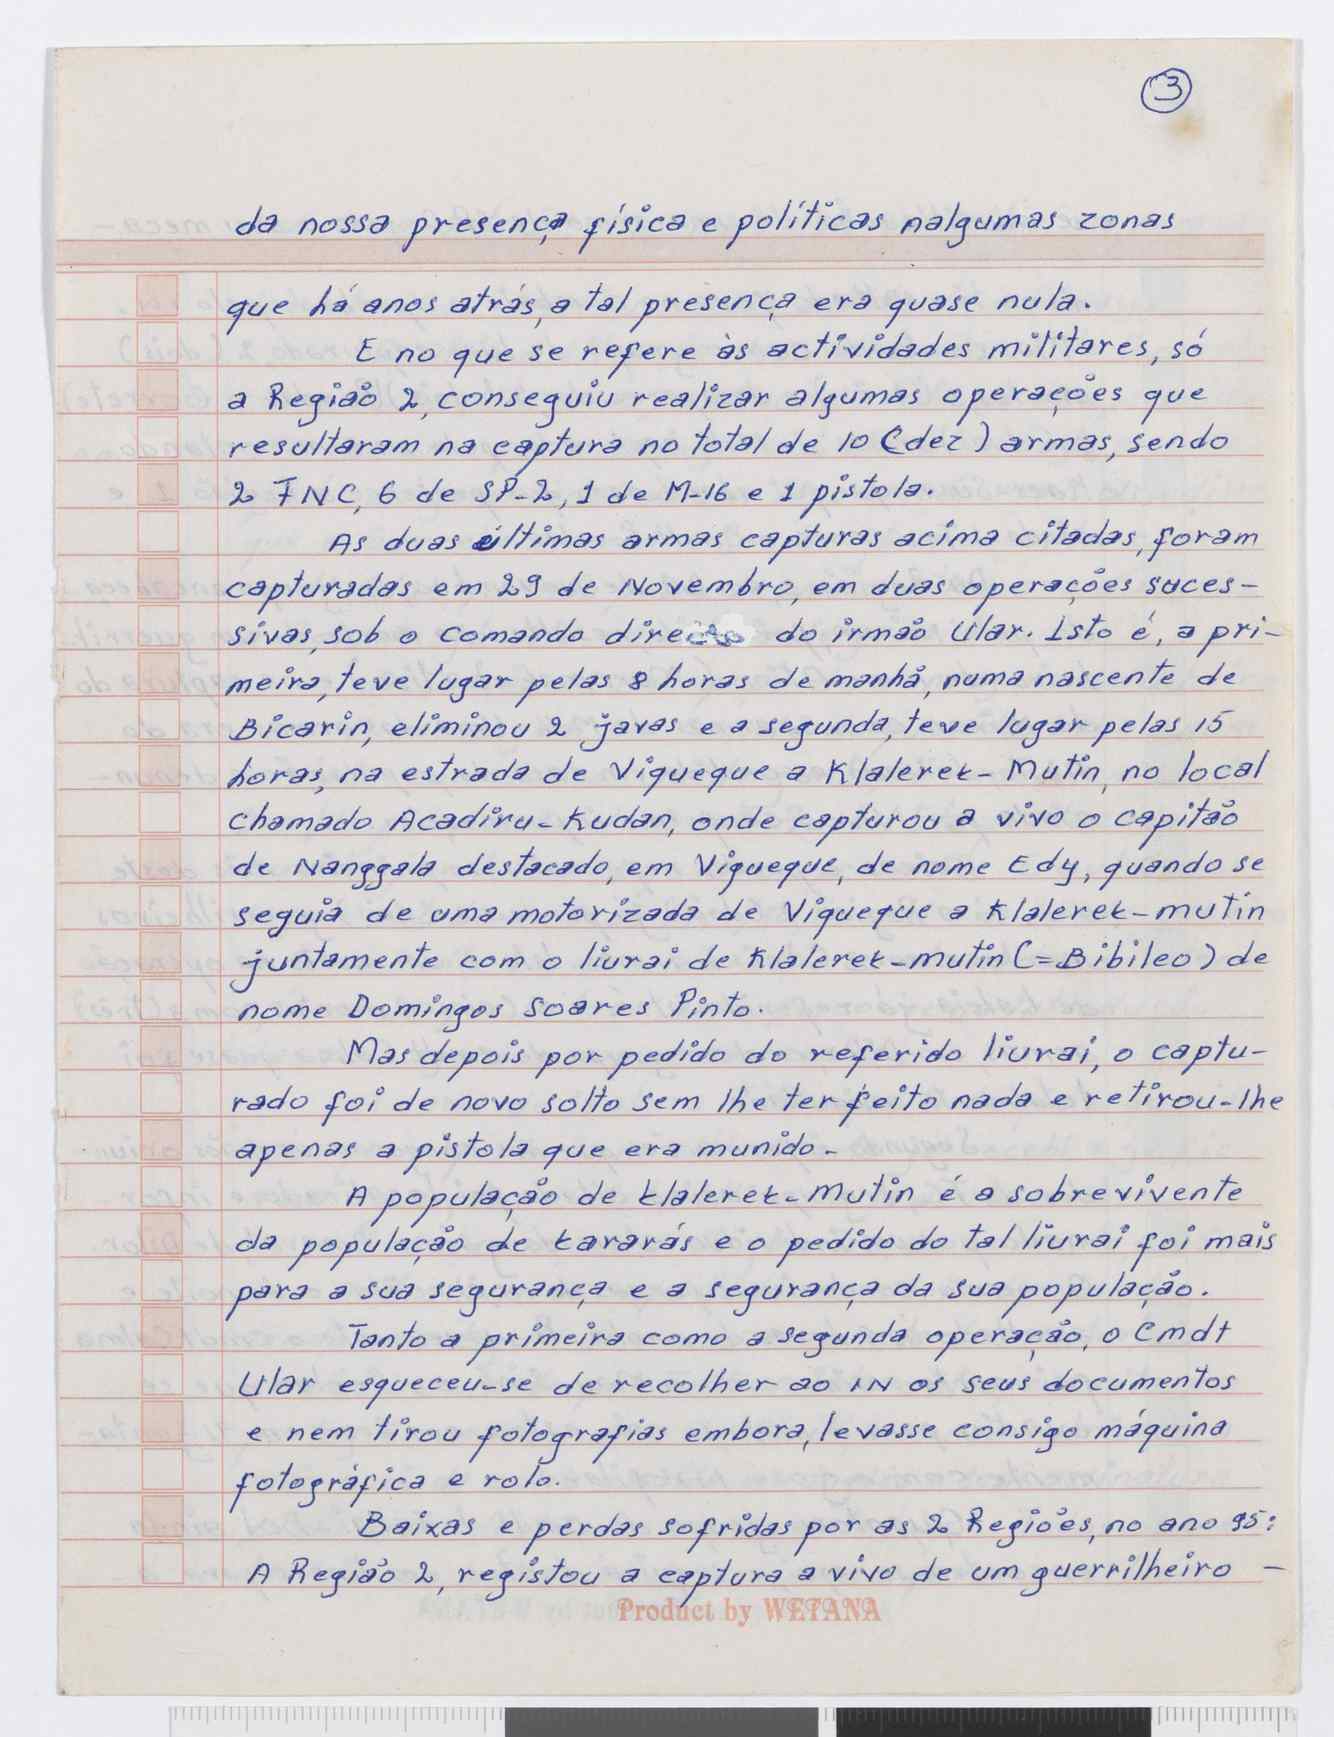 3
da nossa presença física e políticas nalgumas zonas
que há anos atrás, a tal presença era quase nula.
E no que se refere às actividades militares, só
a Região 2, conseguiu realizar algumas operações que
resultaram na captura no total de 10 (dez) armas, sendo
2 FNC, 6 de SP-2, 1 de M-16 e 1 pistola.
As duas últimas armas capturas acima citadas, foram
capturadas em 29 de Novembro, em duas operações suces-
sivas, sob o comando directo do irmão Ular. Isto é, a pri-
meira, teve lugar pelas 8 horas de manhã, numa nascente de
Bicarin, eliminou 2 javas e a segunda, teve lugar pelas 15
horas, na estrada de Viqueque a Klalerek-Mutin, no local
chamado Acadiru-Kudan, onde capturou a vivo o capitão
de Nanggala destacado, em Viqueque, de nome Edy, quando se
seguia de uma motorizada de Viqueque a Klalerek-mutin
juntamente com o liurai de Klalerek-mutin (=Bibileo) de
nome Domingos Soares Pinto.
Mas depois por pedido do referido liurai, o captu-
rado foi de novo solto sem lhe ter feito nada e retirou-lhe
apenas a pistola que era munido.
A população de Klalerek-Mutin é a sobrevivente
da população de Kararás e o pedido do tal liurai foi mais
para a sua segurança e a segurança da sua população.
Tanto a primeira como a segunda operação, o Cmdt
Ular esqueceu-se de recolher ao IN os seus documentos
e nem tirou fotografias embora, levasse consigo máquina
fotográfica e rolo.
Baixas e perdas sofridas por as 2 Regiões, no ano 95:
A Região 2, registou a captura a vivo de um guerrilheiro –
Product by WETANA